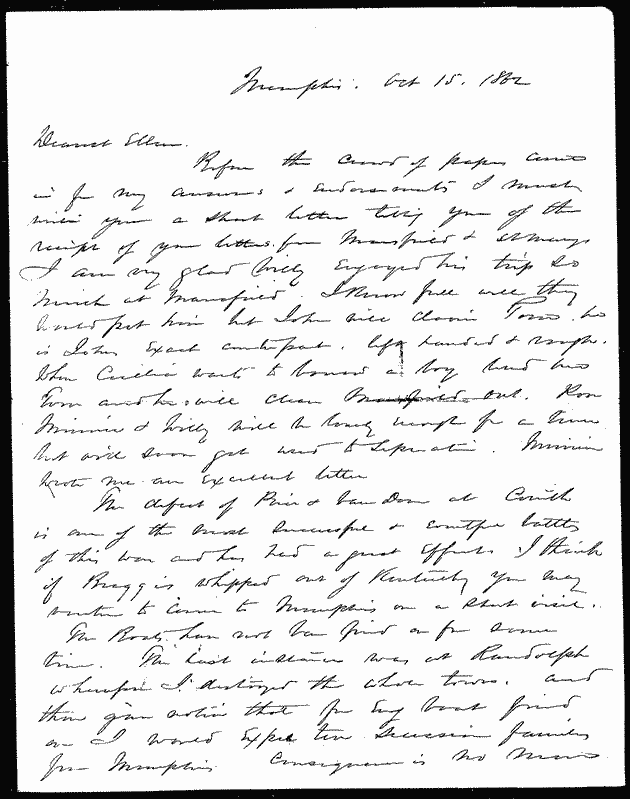 Memphis. Oct 15. 1862
Dearest Ellen.
Before the crowd of papers come
in for my answers & endorsements I must
write you a short letter telling you of the
receipt of your letters from Mansfield & St Marys
I am very glad Willy enjoyed his trip so
much at Mansfield. I know full well they
would pet him but John will claim Tom. he
is Johns exact counterpart. left handed & rough.
When Cecilia wants to borrow a boy lend her
Tom and he will clean Mansfield out. Poor
Minnie & Willy will be lonely enough for a time
but will soon get used to separation. Minnie
wrote me an excellent letter
The defeat of Price & Van Dorn at Corinth
is one of the most successful & beautiful battles
of this war and has had a great effect. I think
if Bragg is whipped out of Kentucky you may
venture to come to Memphis on a short visit.
The Boats have not been fired on for some
time. The last instance was at Randolph
wherefore I destroyed the whole town. and
then gave notice that for every boat fired
on I would expel ten secession families
from Memphis Consequence is no more